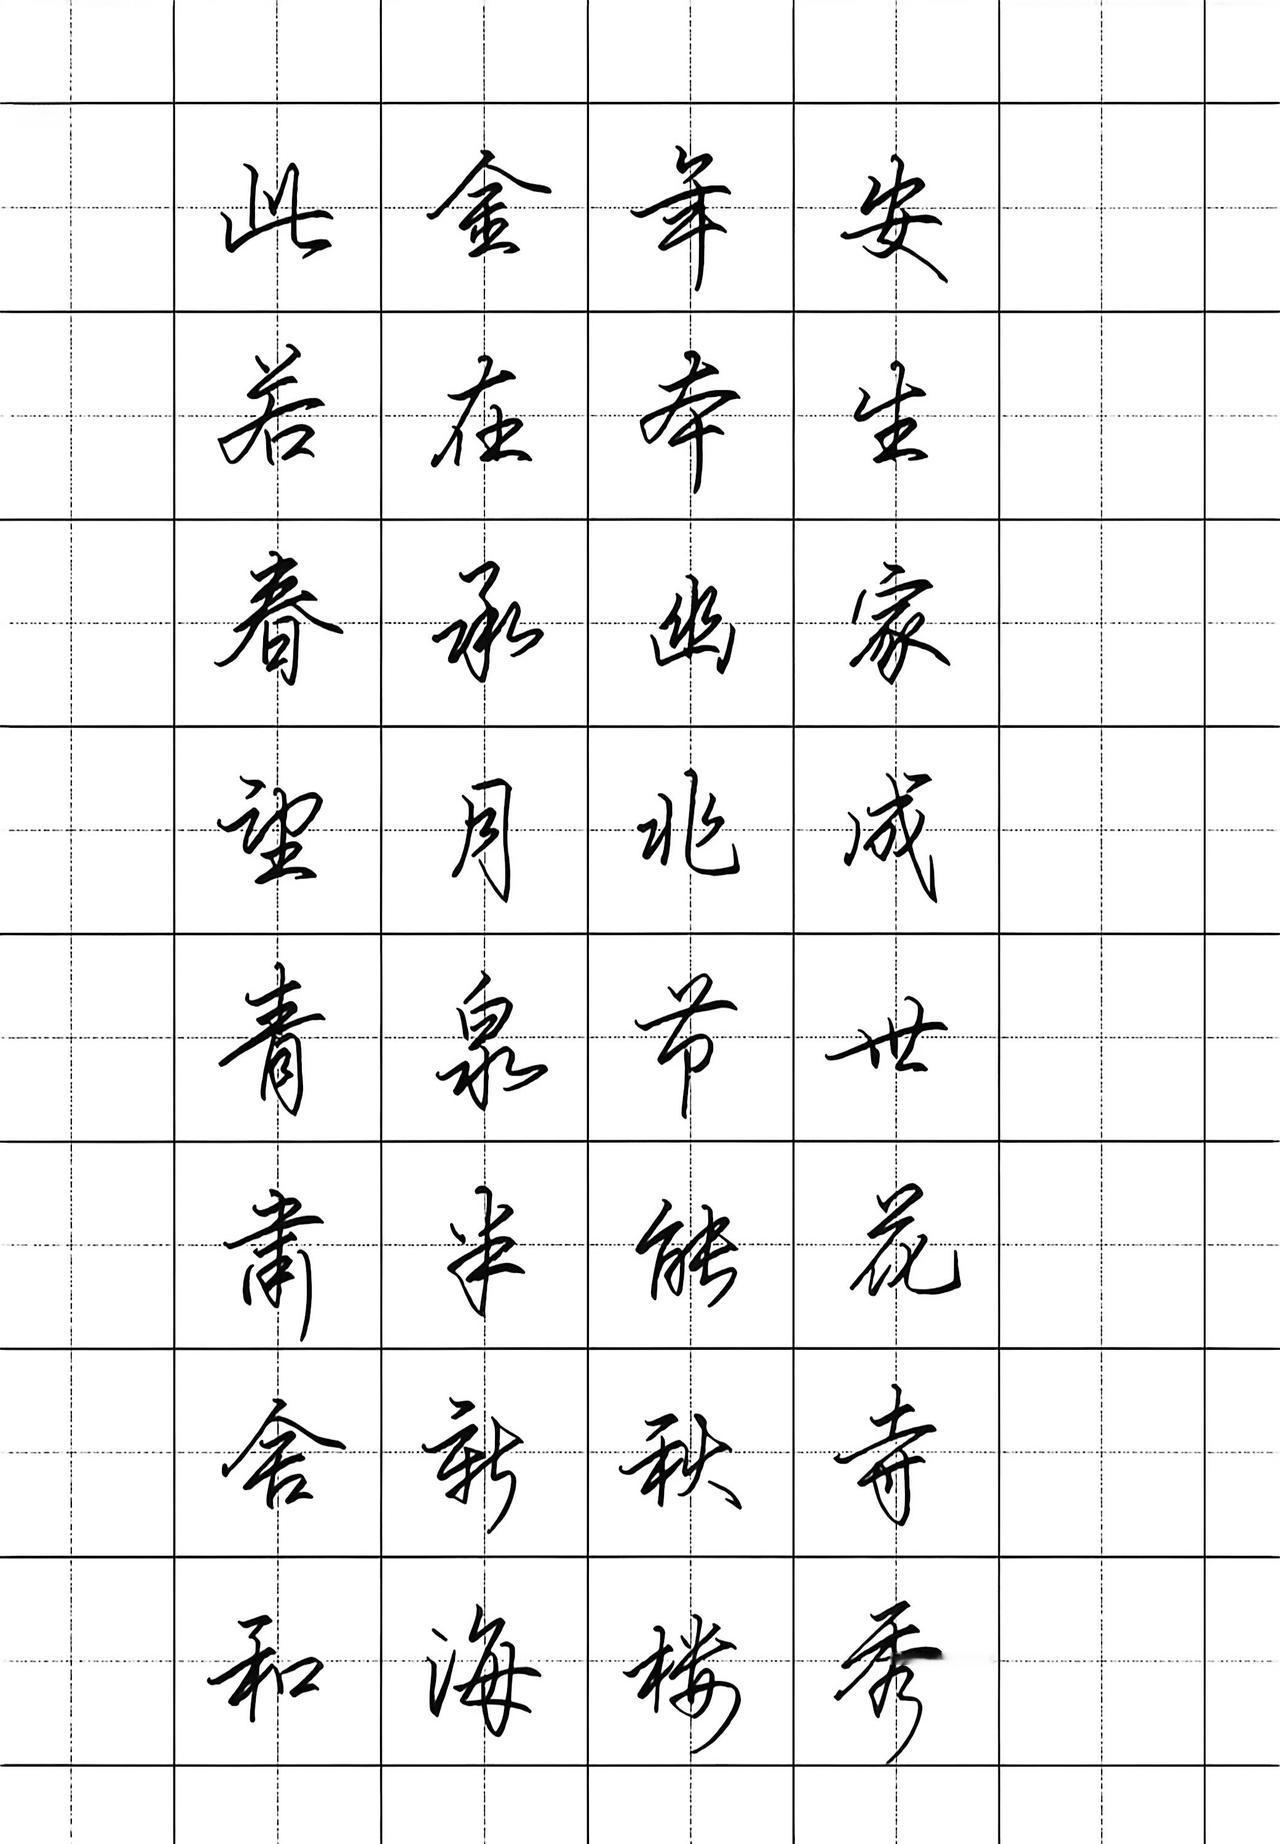 此金年安
若在本生
春承幽家
望月兆成
青泉节世
肃半能花
舍新秋寺
和海楼秀